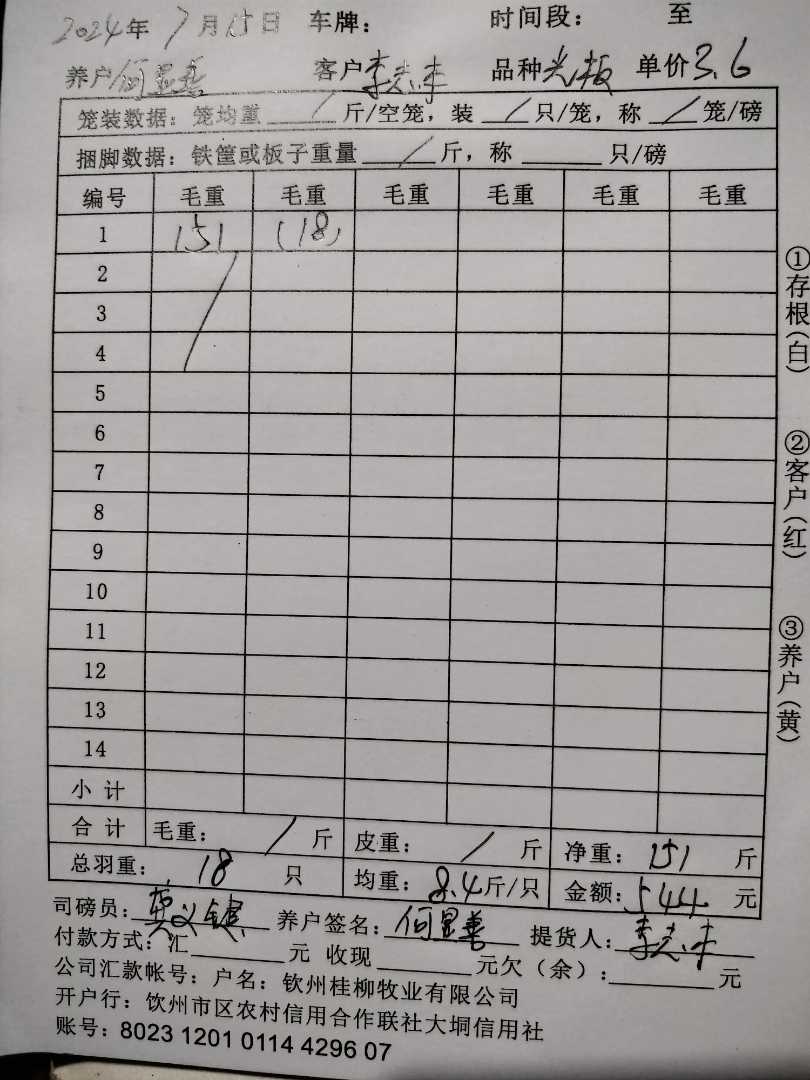 2024年 7月15日 车牌： 时间段： 至
养户 何显善 客户 李志 品种 光板 单价 3.6
笼装数据：笼均重 / 斤/空笼，装 / 只/笼，称 / 笼/磅
捆脚数据：铁筐或板子重量 / 斤，称 只/磅
编号 毛重 毛重 毛重 毛重 毛重 毛重
1 151 (18)
2
3
4
5
6
7
8
9
10
11
12
13
14
小计
合计 毛重： / 斤 皮重： / 斤 净重：151 斤
总羽重： 18 只 均重：8.4斤/只 金额：544 元
司磅员： 养户签名：何显善 提货人：李志
付款方式：汇 元 收现 元欠（余）： 元
公司汇款帐号：户名：钦州桂柳牧业有限公司
开户行：钦州市区农村信用合作联社大垌信用社
账号：8023 1201 0114 4296 07
①存根(白)
②客户(红)
③养户(黄)